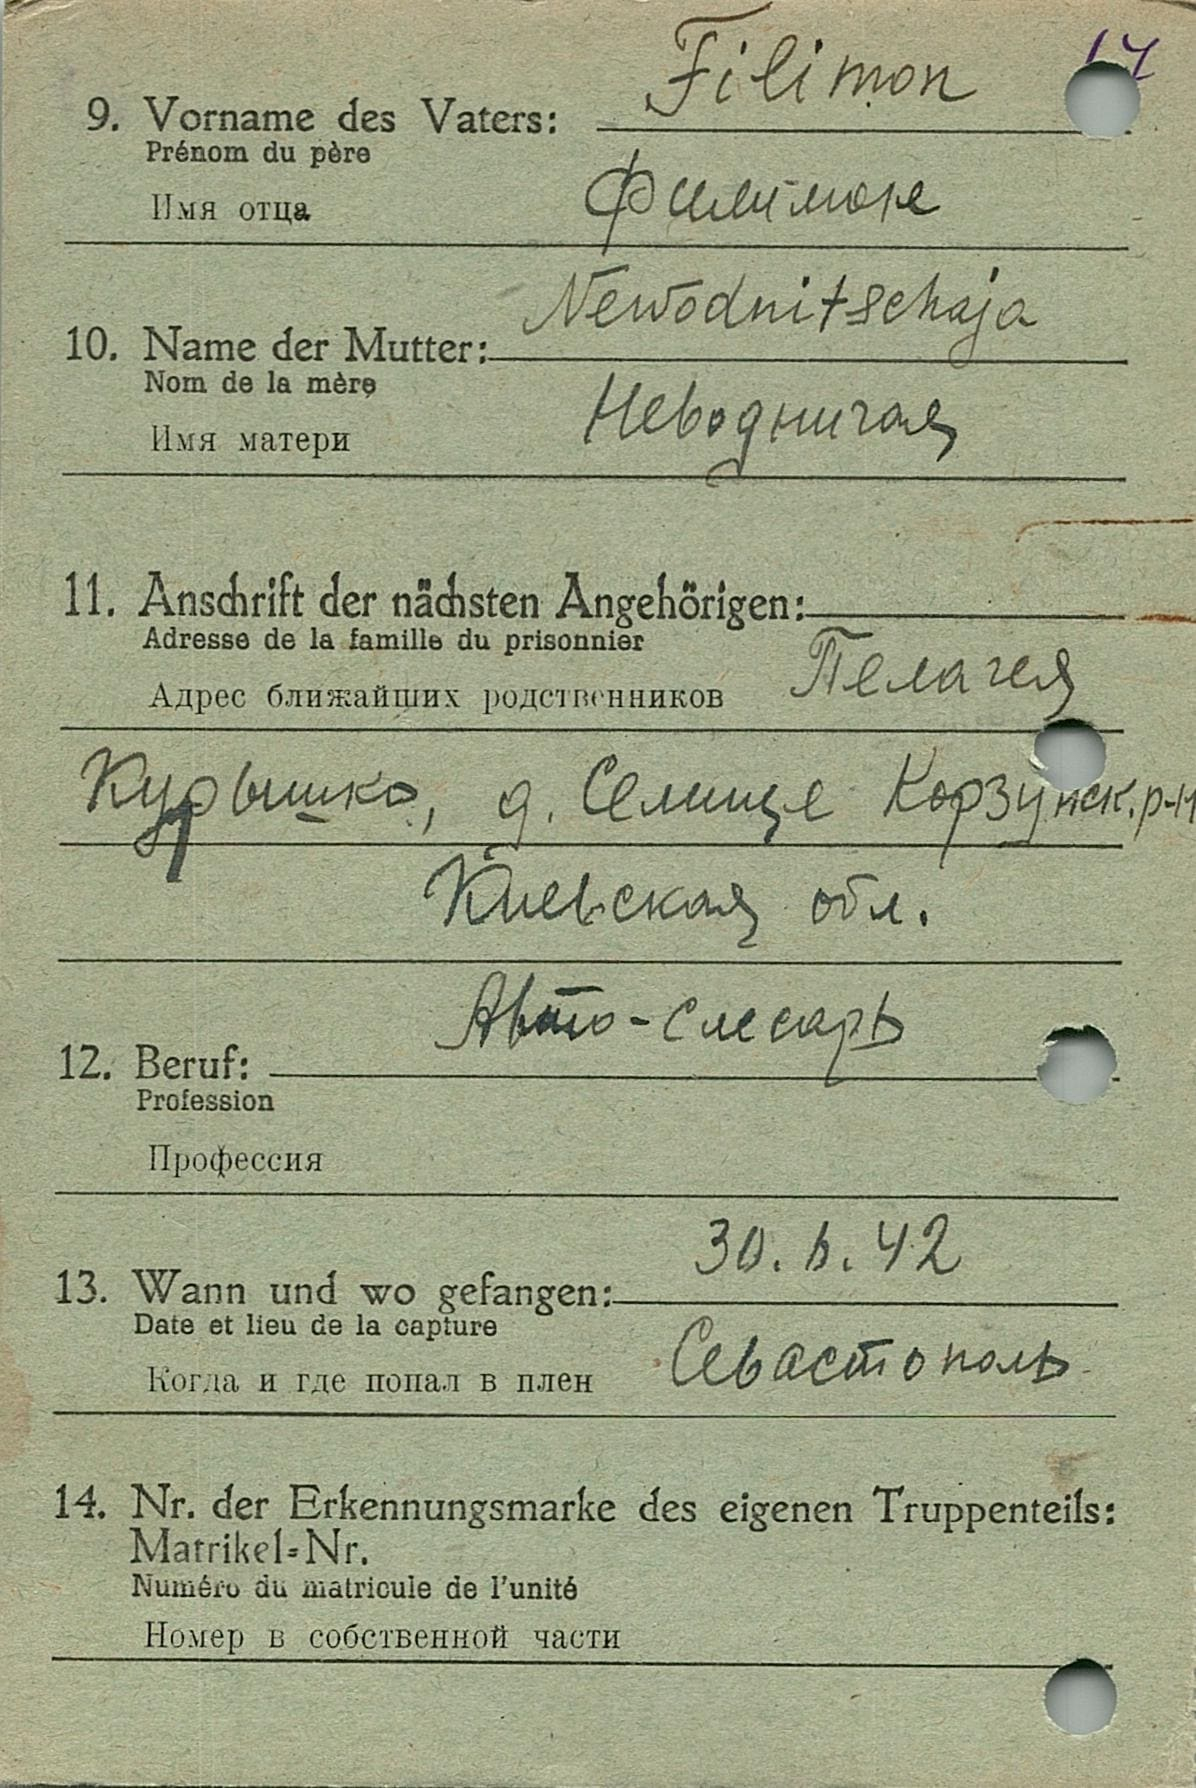 17
Filimon
9. Vorname des Vaters:
Prénom du père
Имя отца
Филимон
Newodnitschaja
10. Name der Mutter:
Nom de la mère
Имя матери
Неводничая
11. Anschrift der nächsten Angehörigen:
Adresse de la famille du prisonnier
Адрес ближайших родственников Пелагея
Курышко, д. Селище Корзунск. р-н
Киевская обл.
Авто-слесарь
12. Beruf:
Profession
Профессия
30. 6. 42
13. Wann und wo gefangen:
Date et lieu de la capture
Когда и где попал в плен Севастополь
14. Nr. der Erkennungsmarke des eigenen Truppenteils:
Matrikel-Nr.
Numéro du matricule de l'unité
Номер в собственной части